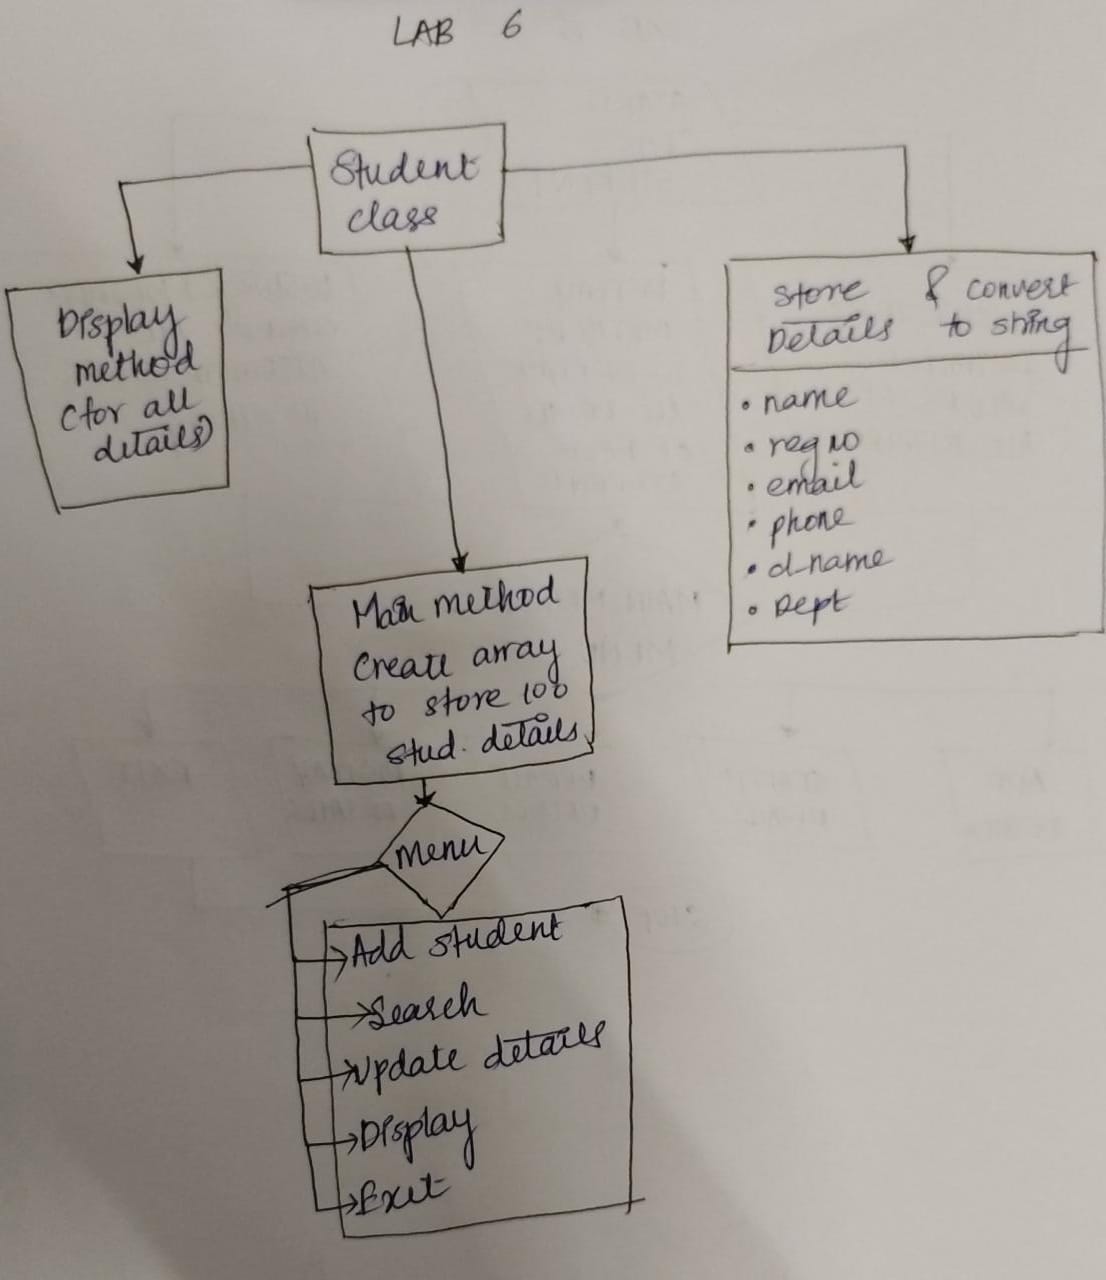 LAB 6
Student
class
Display
method
(for all
details)
Store & convert
Details to string
• name
• reg no
• email
• phone
• d-name
• Dept
Main method
Create array
to store 100
stud. details
Menu
Add student
Search
Update details
Display
Exit